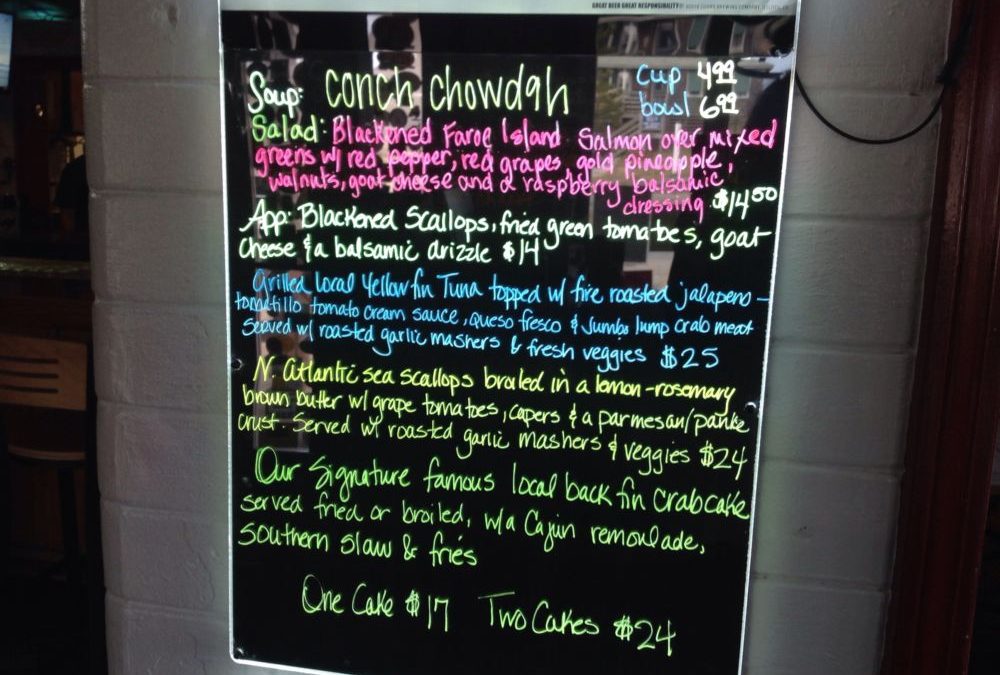 GREAT BEER GREAT RESPONSIBILITY
Soup: conch chowdah cup 4.99
bowl 6.99
Salad: Blackened Faroe Island Salmon over mixed
greens w/ red pepper, red grapes, gold pineapple,
walnuts, goat cheese and a raspberry balsamic
dressing $14.50
App: Blackened Scallops, fried green tomatoes, goat
cheese & a balsamic drizzle $14
Grilled local Yellowfin Tuna topped w/ fire roasted jalapeno-
tomatillo tomato cream sauce, queso fresco & Jumbo lump crab meat
Served w/ roasted garlic mashers & fresh veggies $25
N. Atlantic sea scallops broiled in a lemon-rosemary
brown butter w/ grape tomatoes, capers & a parmesan/panko
crust. Served w/ roasted garlic mashers & veggies $24
Our Signature famous local back fin crabcake
served fried or broiled, w/a Cajun remoulade,
southern slaw & fries
One Cake $17 Two Cakes $24